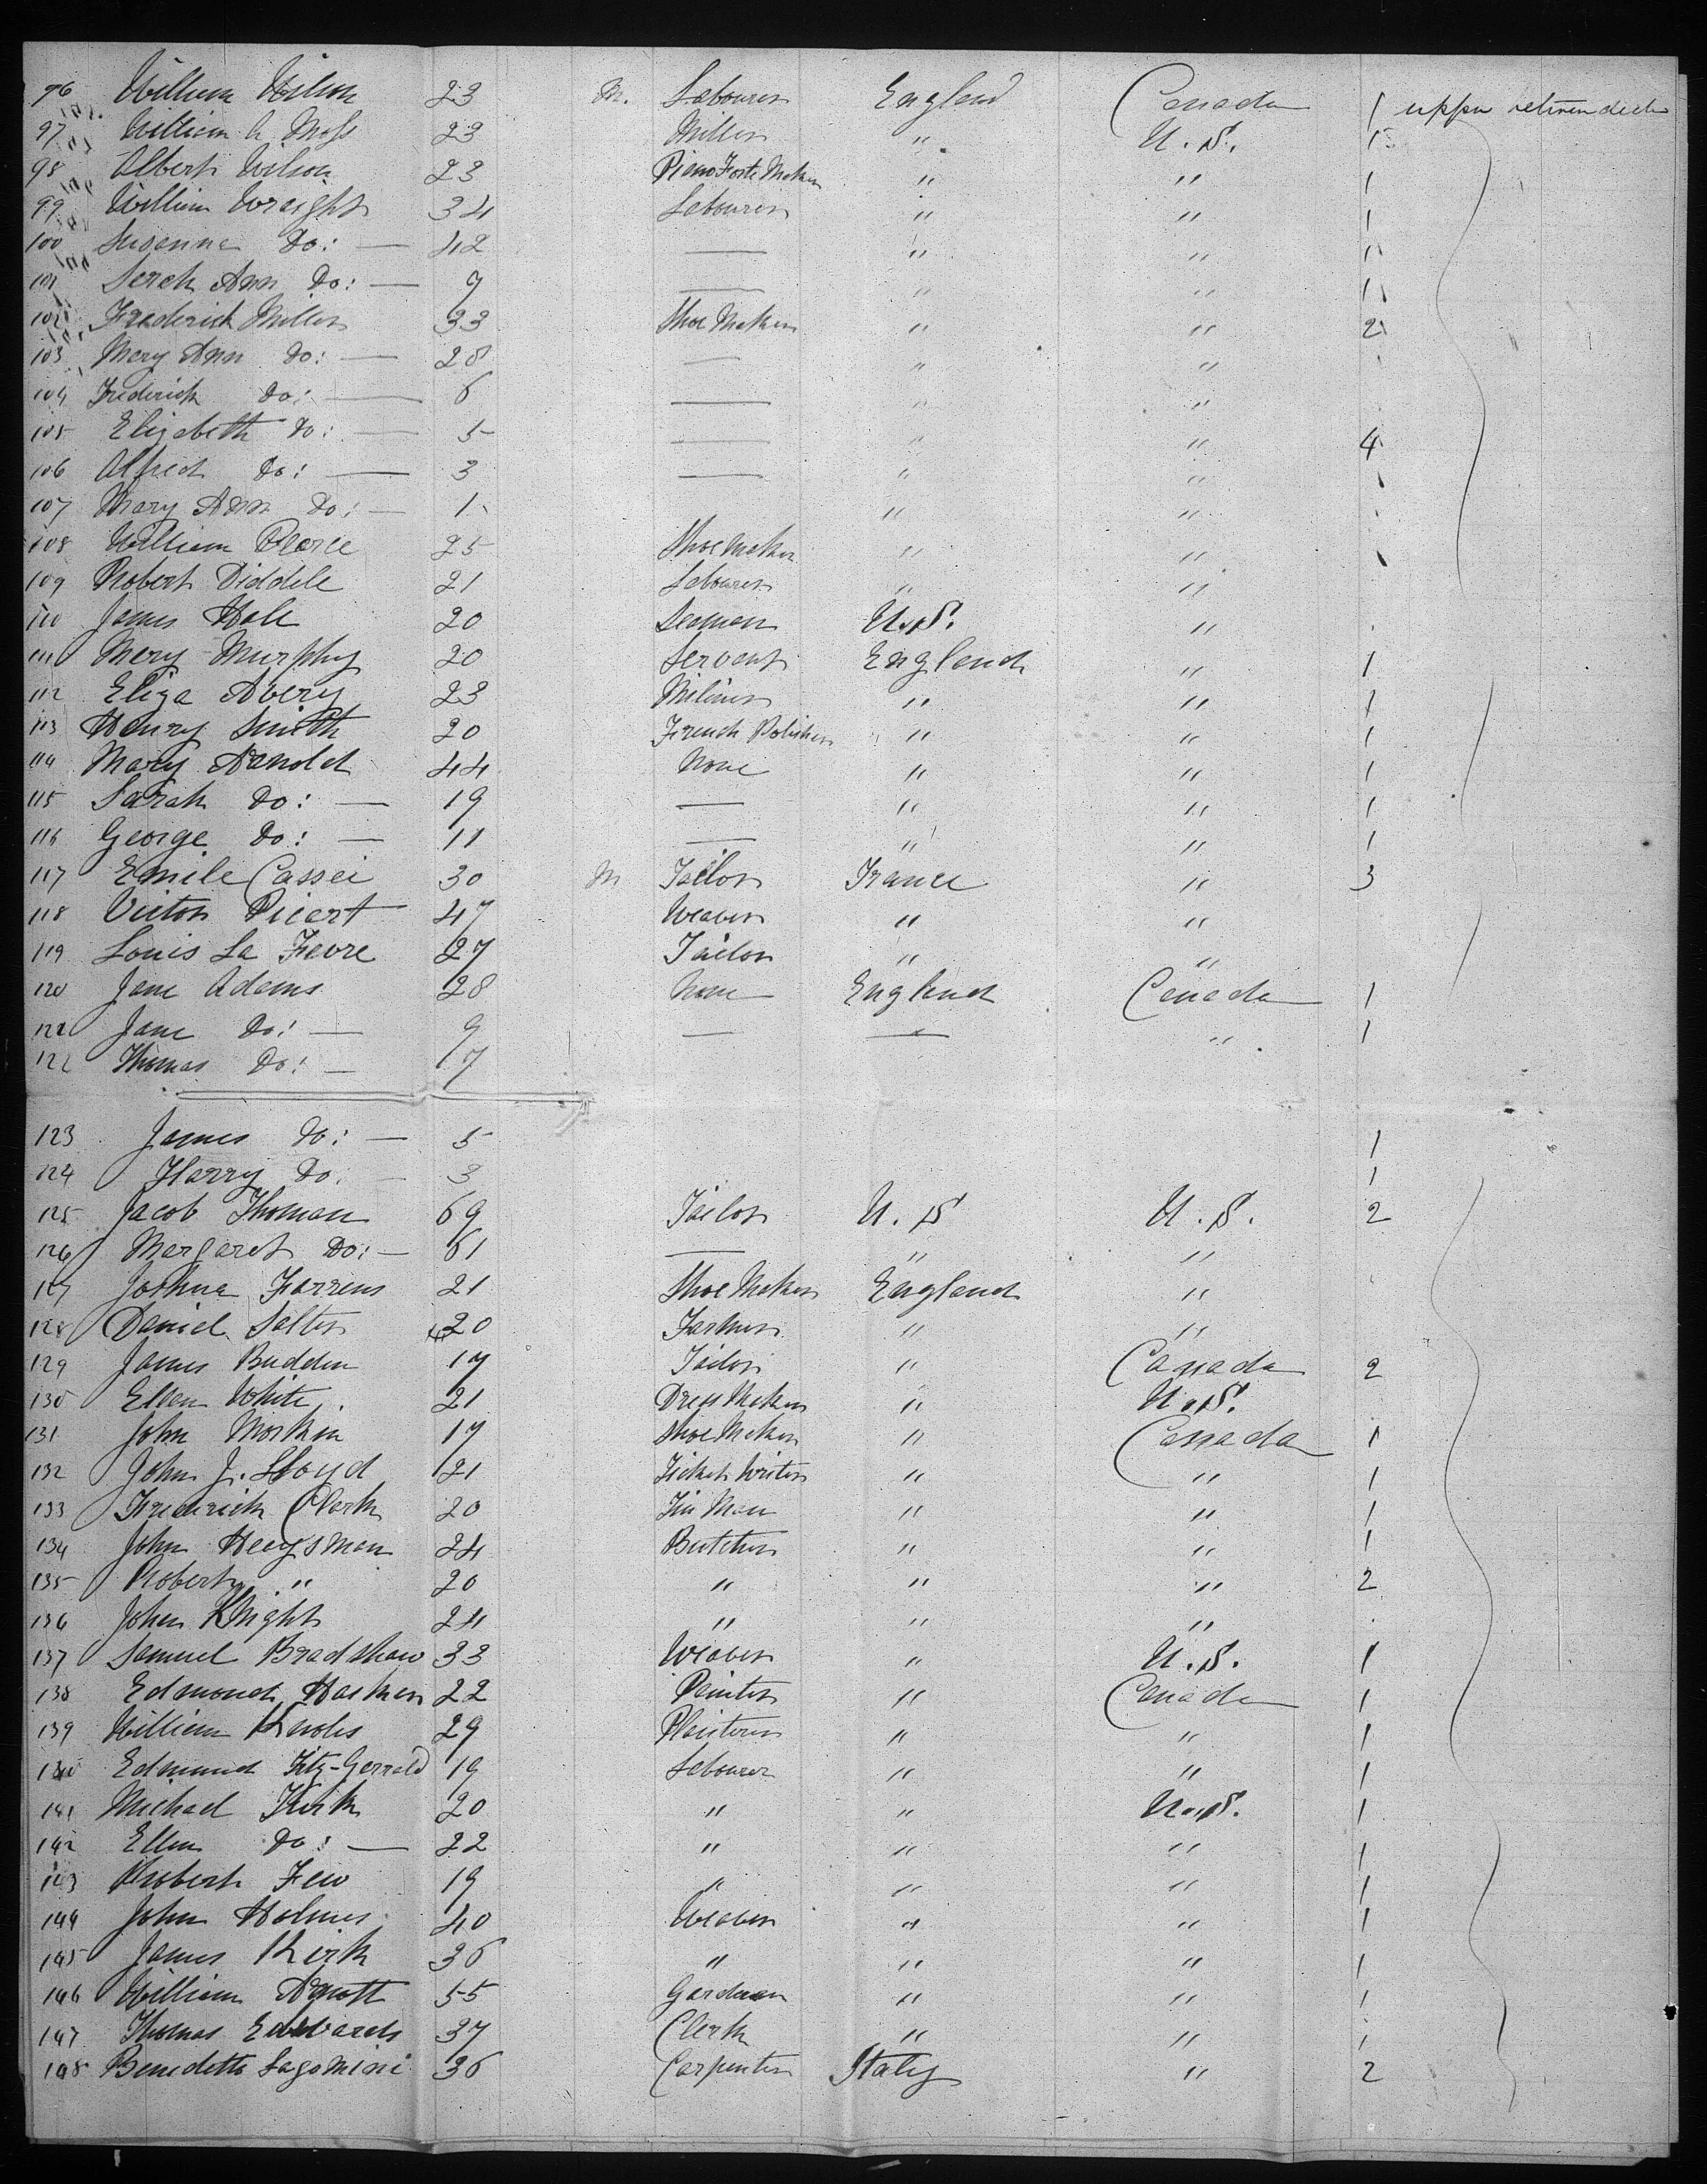 96 William Wilson 23 M. Labourer England Canada 1 upper between decks
97 William h Moss 23 Miller " U.S. 1
98 Albert Wilson 23 Piano Forte Maker " " 1
99 William Wraight 34 Labourer " " 1
100 Susanna Do: — 42 — " " 1
101 Sarah Ann Do: — 9 — " " 1
102 Frederick Miller 33 Shoe Maker " " 2
103 Mary Ann Do: — 28 — " "
104 Frederick Do: — 6 — " "
105 Elizabeth Do: — 5 — " " 4
106 Alfred Do: — 3 — " "
107 Mary Ann Do: — 1 " "
108 William Pearce 25 Shoe Maker " "
109 Robert Diddele 21 Labourer " "
110 James Hale 20 Seaman U.S. "
111 Mary Murphy 20 Servant England " 1
112 Eliza Avery 23 Miliner " " 1
113 Henry Smith 20 French Polisher " " 1
114 Mary Arnold 44 None " " 1
115 Sarah Do: — 19 — " " 1
116 George Do: — 11 — " " 1
117 Emile Cassei 30 M Tailor France " 3
118 Victor Picart 47 Weaver " "
119 Louis La Fevre 27 Tailor " "
120 Jane Adams 28 None England Canada 1
121 Jane Do: — 9 — — " 1
122 Thomas Do: — 7
123 James Do: — 5 1
124 Harry Do: — 3 1
125 Jacob Thoman 69 Tailor U.S U.S. 2
126 Margaret Do: — 61 — " "
127 Joshua Farrens 21 Shoe Maker England "
128 Daniel Salter 20 Farmer " "
129 James Budden 17 Tailor " Canada 2
130 Ellen White 21 Dress Maker " U.S.
131 John Morkin 17 Shoe Maker " Canada 1
132 John J. Lloyd 21 Ticket Writer " " 1
133 Frederick Clark 20 Tin Man " " 1
134 John Heaysman 24 Butcher " " 1
135 Robert " 20 " " " 2
136 John Knight 24 " " "
137 Samuel Bradshaw 33 Weaver " U.S. 1
138 Edmond Harman 22 Painter " Canada 1
139 William Knoles 29 Plaisterer " " 1
140 Edmund Fitz-Gerrald 19 Labourer " " 1
141 Michael Kirk 20 " " U.S. 1
142 Ellen Do: — 22 " " " 1
143 Robert Few 19 " " " 1
144 John Holmes 40 Weaver " " 1
145 James Kirk 36 " " " 1
146 William Arnott 55 Gardener " " 1
147 Thomas Edwards 37 Clerk " " 1
148 Benedetto Lagomini 36 Carpenter Italy " 2